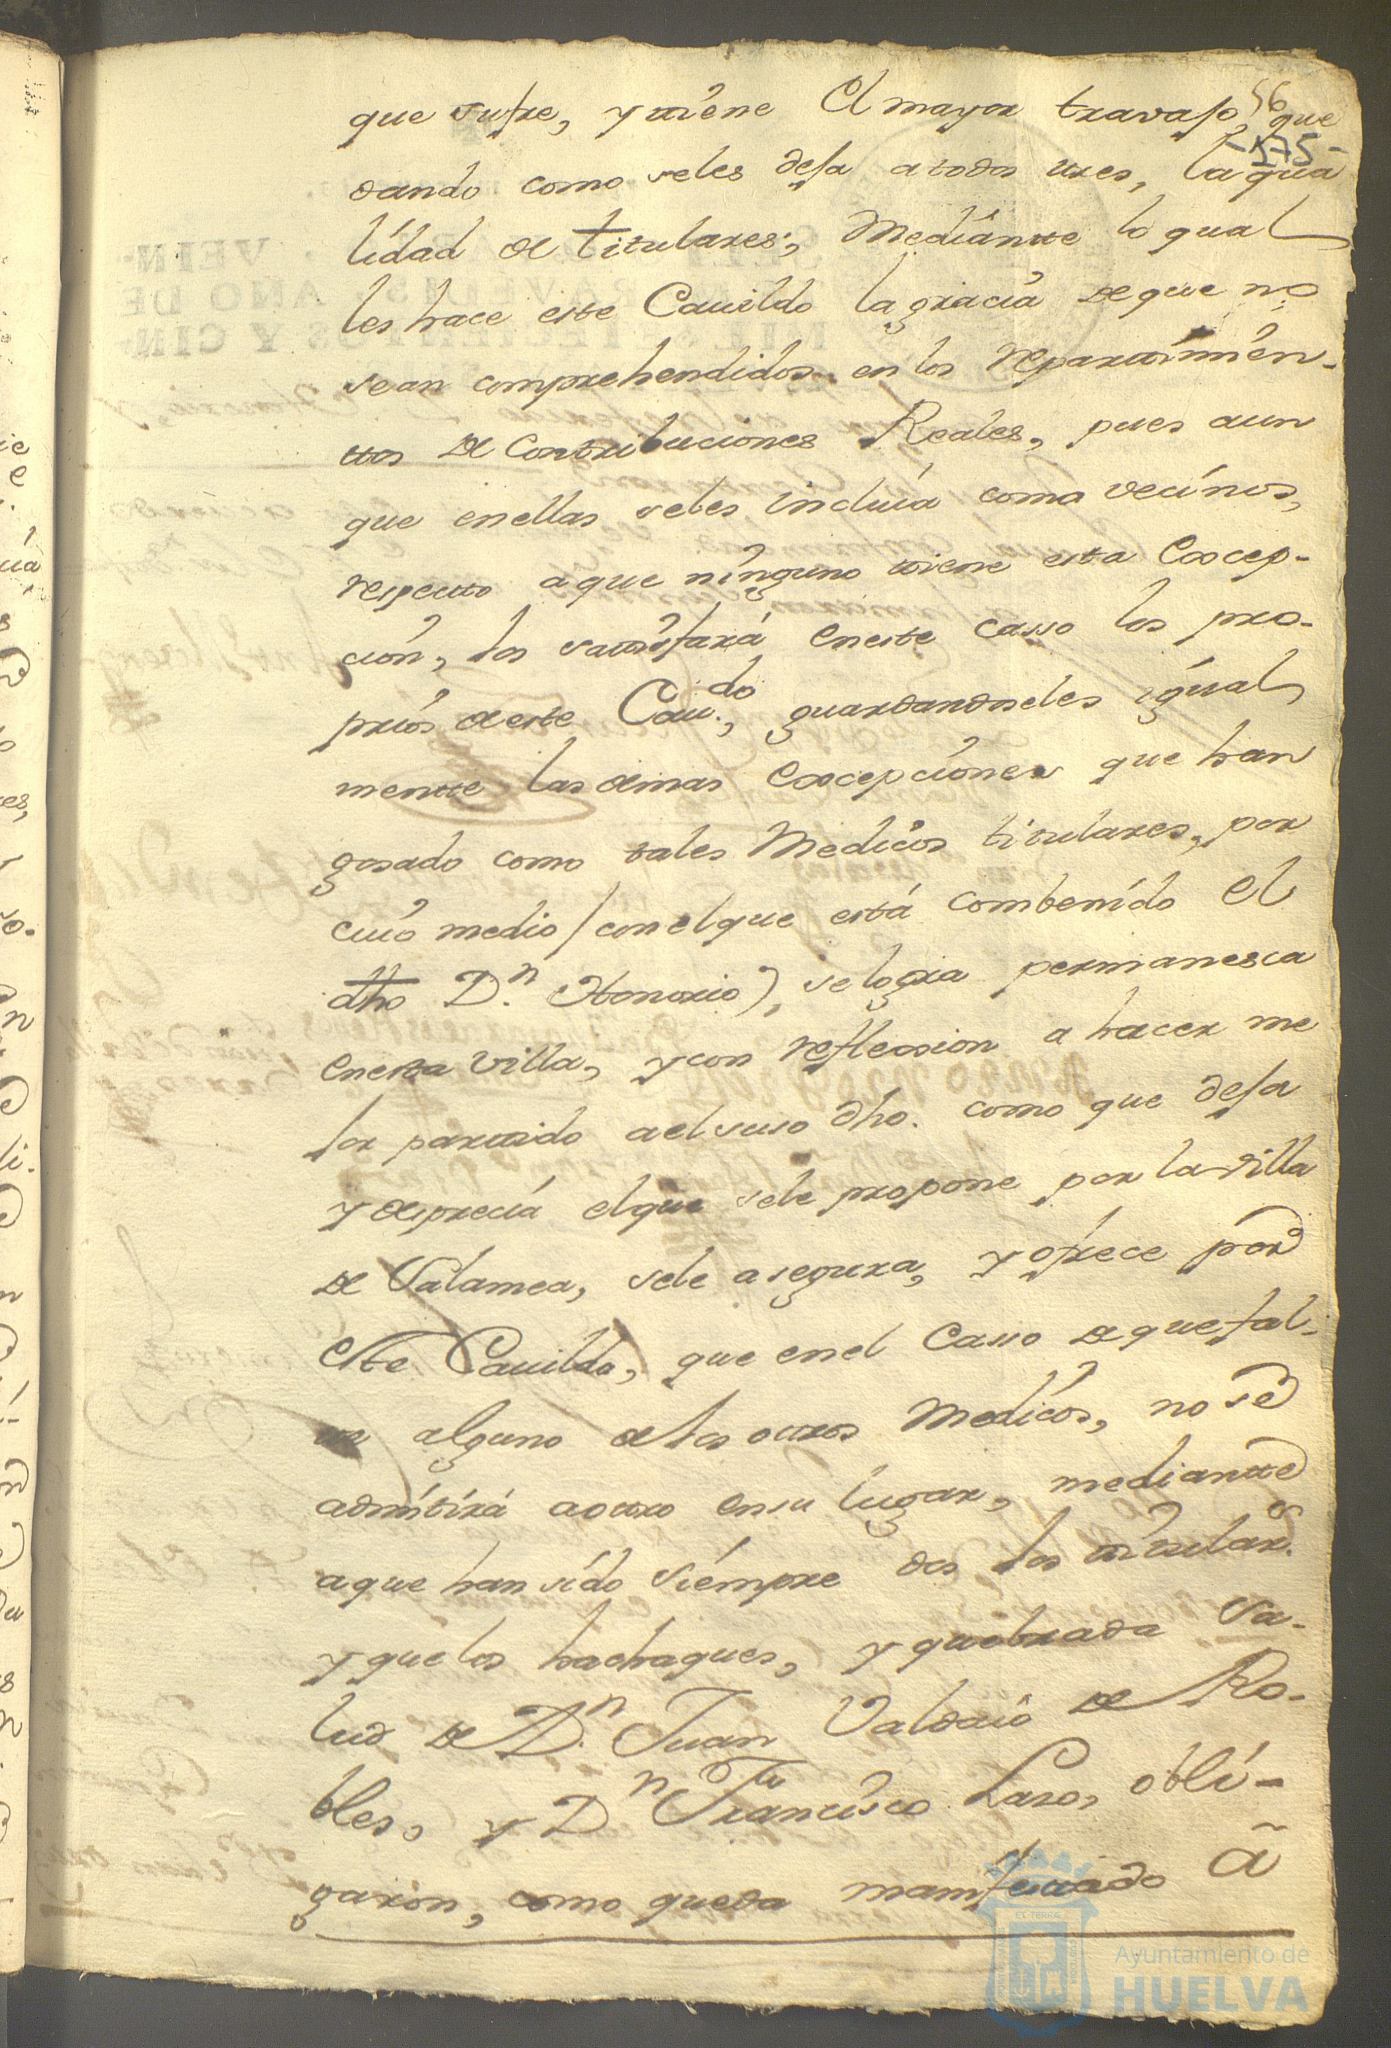 que sufre, y tiene el mayor travajo, que
56
-175-
dando como seles desa atodos tres, la qua
lidad de titulares; Mediantte lo qual
les hace este Cavildo la gracia de que no
sean comprehendidos en los repartimien-
ttos de Contribuciones Reales, pues aun
que enellas seles incluia como vecinos,
respecto aque ninguno tiene esta Excep-
cion, los sattisfará eneste casso los pro-
prios deeste Cav.do, guardandoseles igual
mentte las demas Excepciones que han
gosado como tales Medicos titulares, por
cuio medio /con el que está combenido el
dho D.n Honorio), se logra permanesca
enesta villa, y con reflecsion a hacer me
jor partido ael suso dho. como que desa
y desprecia elque sele propone por la villa
de Salamea, sele asegura, y ofrece por
este Cavildo, que enel Casso de que fal-
te alguno delos otros Medicos, no se
admitirá aotro en su lugar, mediantte
aque han sido siempre dos los titulares
y que los hachaques, y quebrada Sa-
lud de D.n Juan Valdaio de Ro-
bles, y D.n Francisco Laso, obli-
garon, como queda manifestado â
Ayuntamiento de
HUELVA